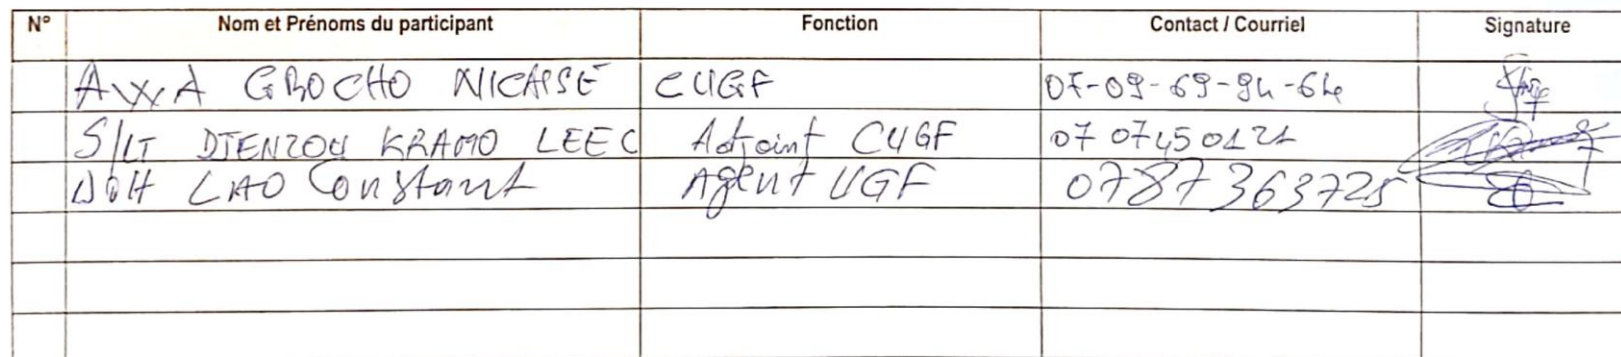 N° Nom et Prénoms du participant Fonction Contact / Courriel Signature
AYXA GBOCHO NICAISE CUGF 07-09-69-94-64
S/LT DJENZOU KRAMO LEEC Adjoint CUGF 07 07450121
DOH LAO Constant Agent UGF 0787363725